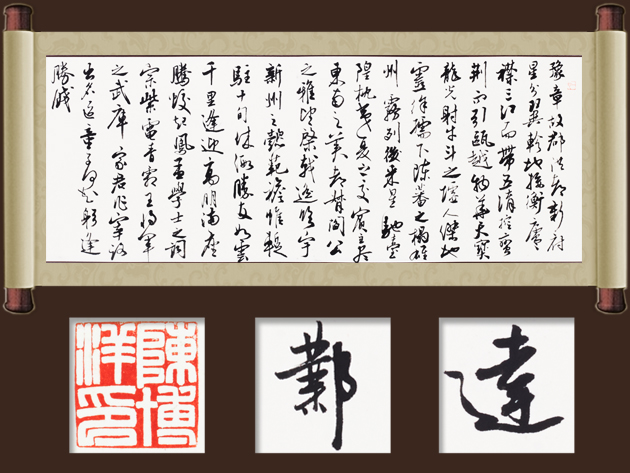 豫章故郡洪都新府
星分翼軫地接衡廬
襟三江而帶五湖控蠻
荊而引甌越物華天寶
龍光射牛斗之墟人傑地
靈徐孺下陳蕃之榻雄
州霧列俊采星馳臺
隍枕夷夏之交賓主盡
東南之美都督閻公
之雅望棨戟遙臨宇
新州之懿範襜帷暫
駐十旬休假勝友如雲
千里逢迎高朋滿座
騰蛟起鳳孟學士之詞
宗紫電青霜王將軍
之武庫家君作宰路
出名區童子何知躬逢
勝餞
陳博
洋印
鄴
達